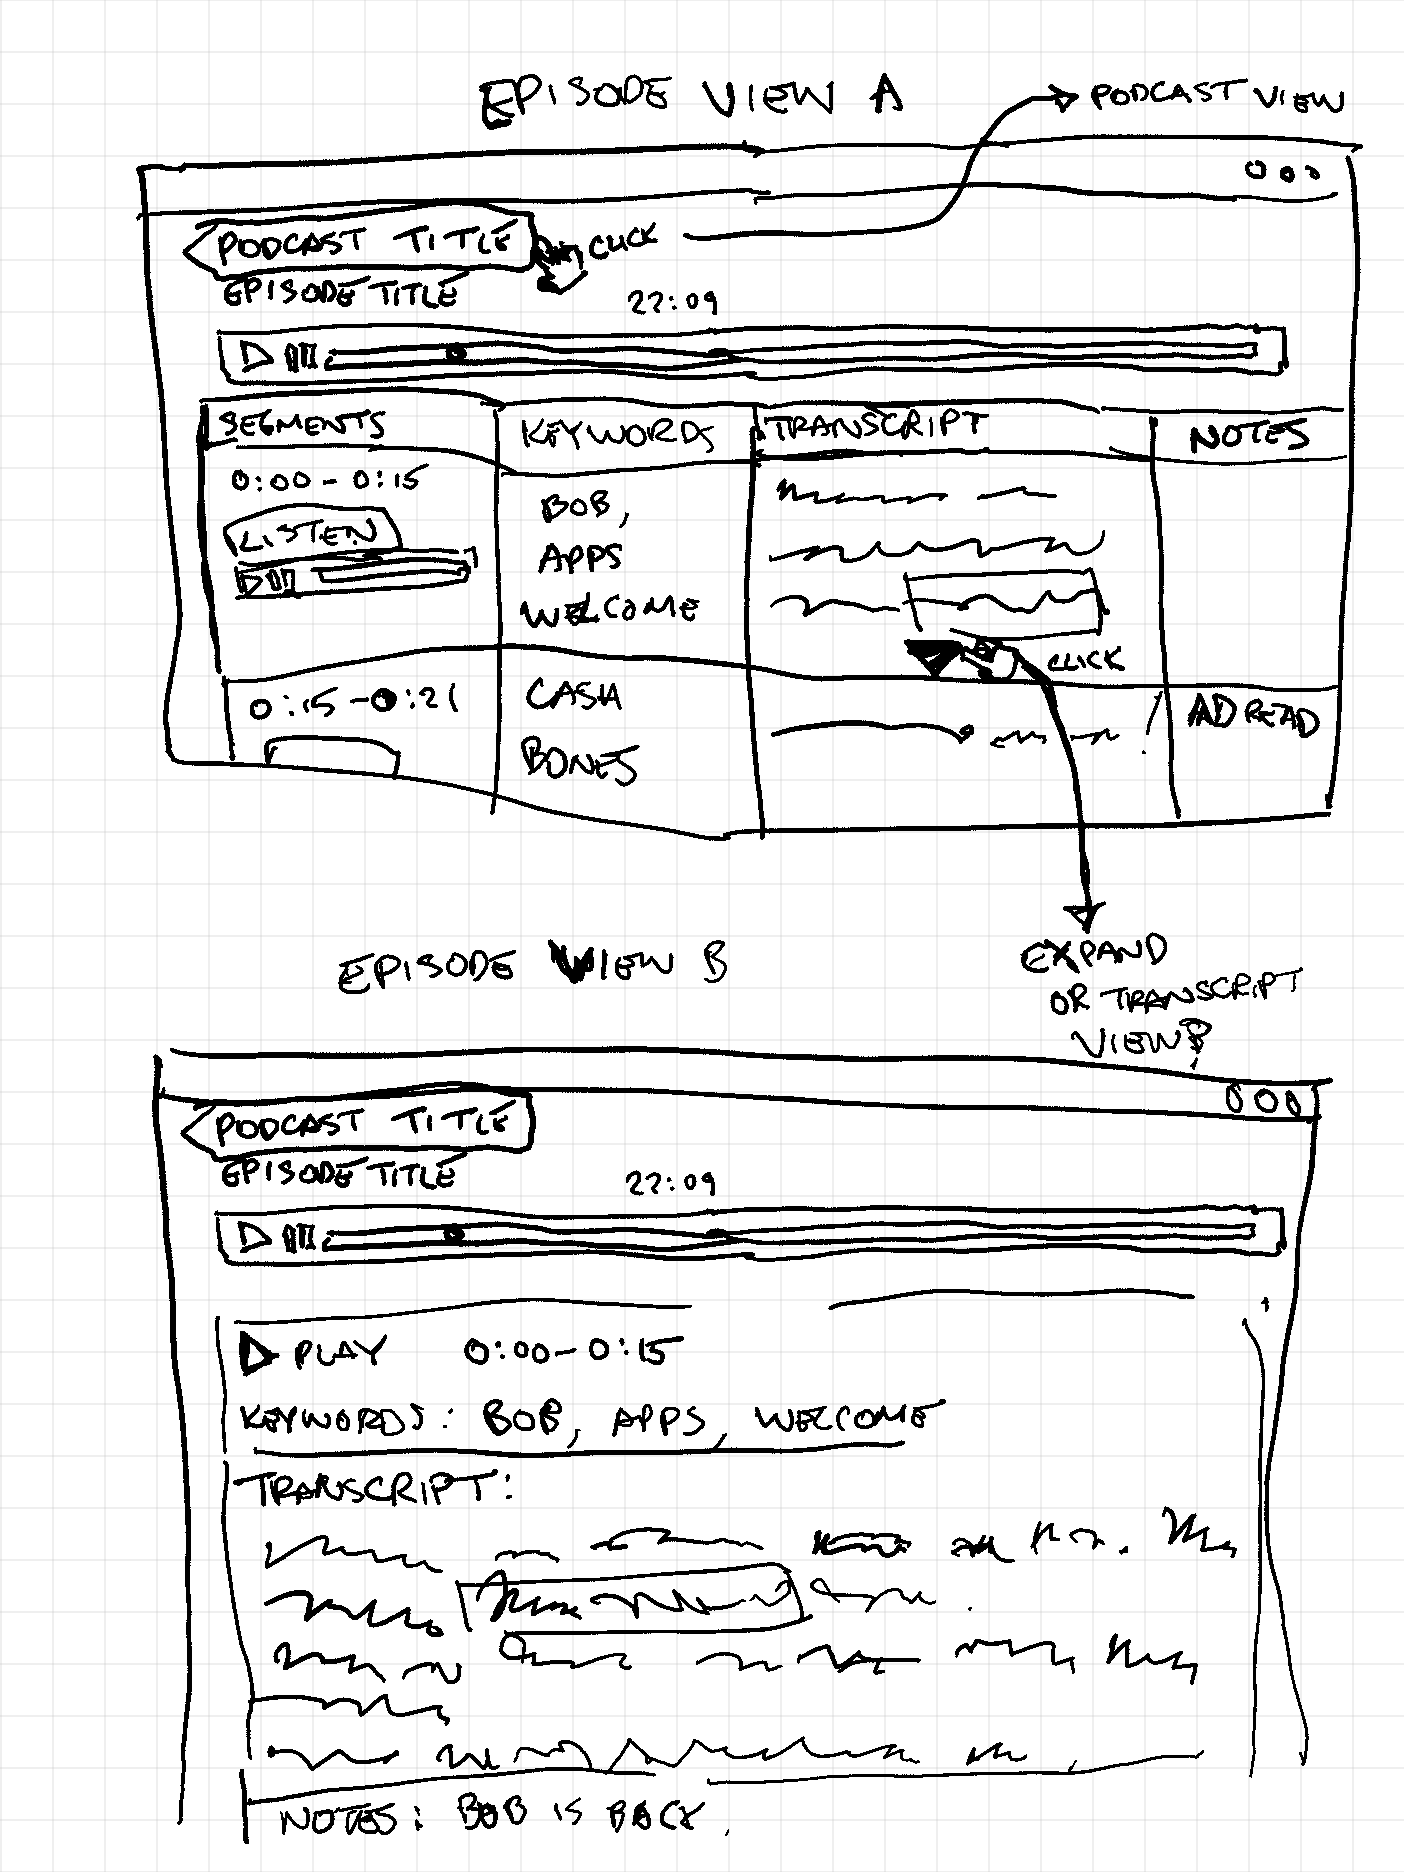 EPISODE VIEW A
PODCAST VIEW
PODCAST TITLE
CLICK
EPISODE TITLE
22:09
SEGMENTS
KEYWORDS
TRANSCRIPT
NOTES
0:00 - 0:15
LISTEN
BOB,
APPS
WELCOME
CLICK
0:15 - 0:21
CASH
BONES
AD READ
EPISODE VIEW B
EXPAND
OR TRANSCRIPT
VIEW?
PODCAST TITLE
EPISODE TITLE
22:09
PLAY 0:00 - 0:15
KEYWORDS: BOB, APPS, WELCOME
TRANSCRIPT:
NOTES: BOB IS BACK.